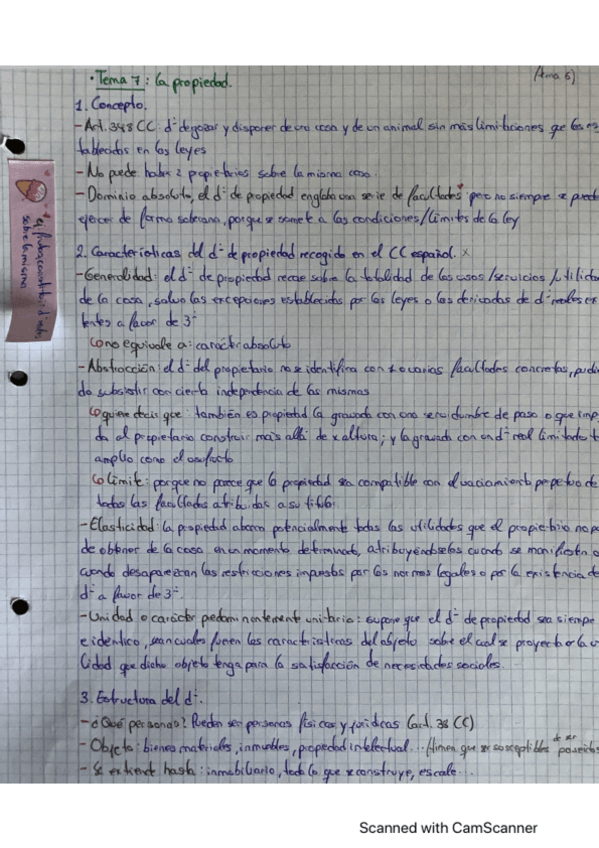 · Tema 7: la propiedad. (tema 6)
1. Concepto.
- Art. 348 CC: dº de gozar y disponer de una cosa y de un animal sin más limitaciones que las es
tablecidas en las leyes
- No puede haber 2 propietarios sobre la misma cosa.
- Dominio absoluto, el dº de propiedad engloba una serie de facultades* pero no siempre se puede
ejercer de forma soberana, porque se somete a las condiciones/límites de la ley
sobre la misma
2. Características del dº de propiedad recogido en el CC español. x
- Generalidad: el dº de propiedad recae sobre la totalidad de las cosas/servicios/utilida
de la cosa, salvo las excepciones establecidas por las leyes o las derivadas de dº reales ex
tentes a favor de 3º
no equivale a: carácter absoluto
- Abstracción: el dº del propietario no se identifica con 1 o varias facultades concretas, pudi
do subsistir con cierta independencia de las mismas
quiere decir que: también es propiedad la gravada con una servidumbre de paso o que imp
da al propietario construir más allá de x altura; y la gravada con un dº real limitado t
amplio como el usufructo
límite: porque no parece que la propiedad sea compatible con el vaciamiento perpetuo de
todas las facultades atribuidas a su titular
- Elasticidad: la propiedad abarca potencialmente todas las utilidades que el propietario no p
de obtener de la cosa en un momento determinado, atribuyéndoselas cuando se manifiesten o
cuando desaparezcan las restricciones impuestas por las normas legales o por la existencia de
dº a favor de 3º.
- Unidad o carácter predominantemente unitario: supone que el dº de propiedad sea siempre
e idéntico, sean cuales fueren las características del objeto sobre el cual se proyecta o la u
lidad que dicho objeto tenga para la satisfacción de necesidades sociales.
3. Estructura del dº.
- ¿Qué personas? Pueden ser personas físicas y jurídicas (art. 38 CC)
- Objeto: bienes materiales, inmuebles, propiedad intelectual... tienen que ser susceptibles de ser poseídos
- Se extiende hasta: inmobiliario, todo lo que se construye, escale...
Scanned with CamScanner